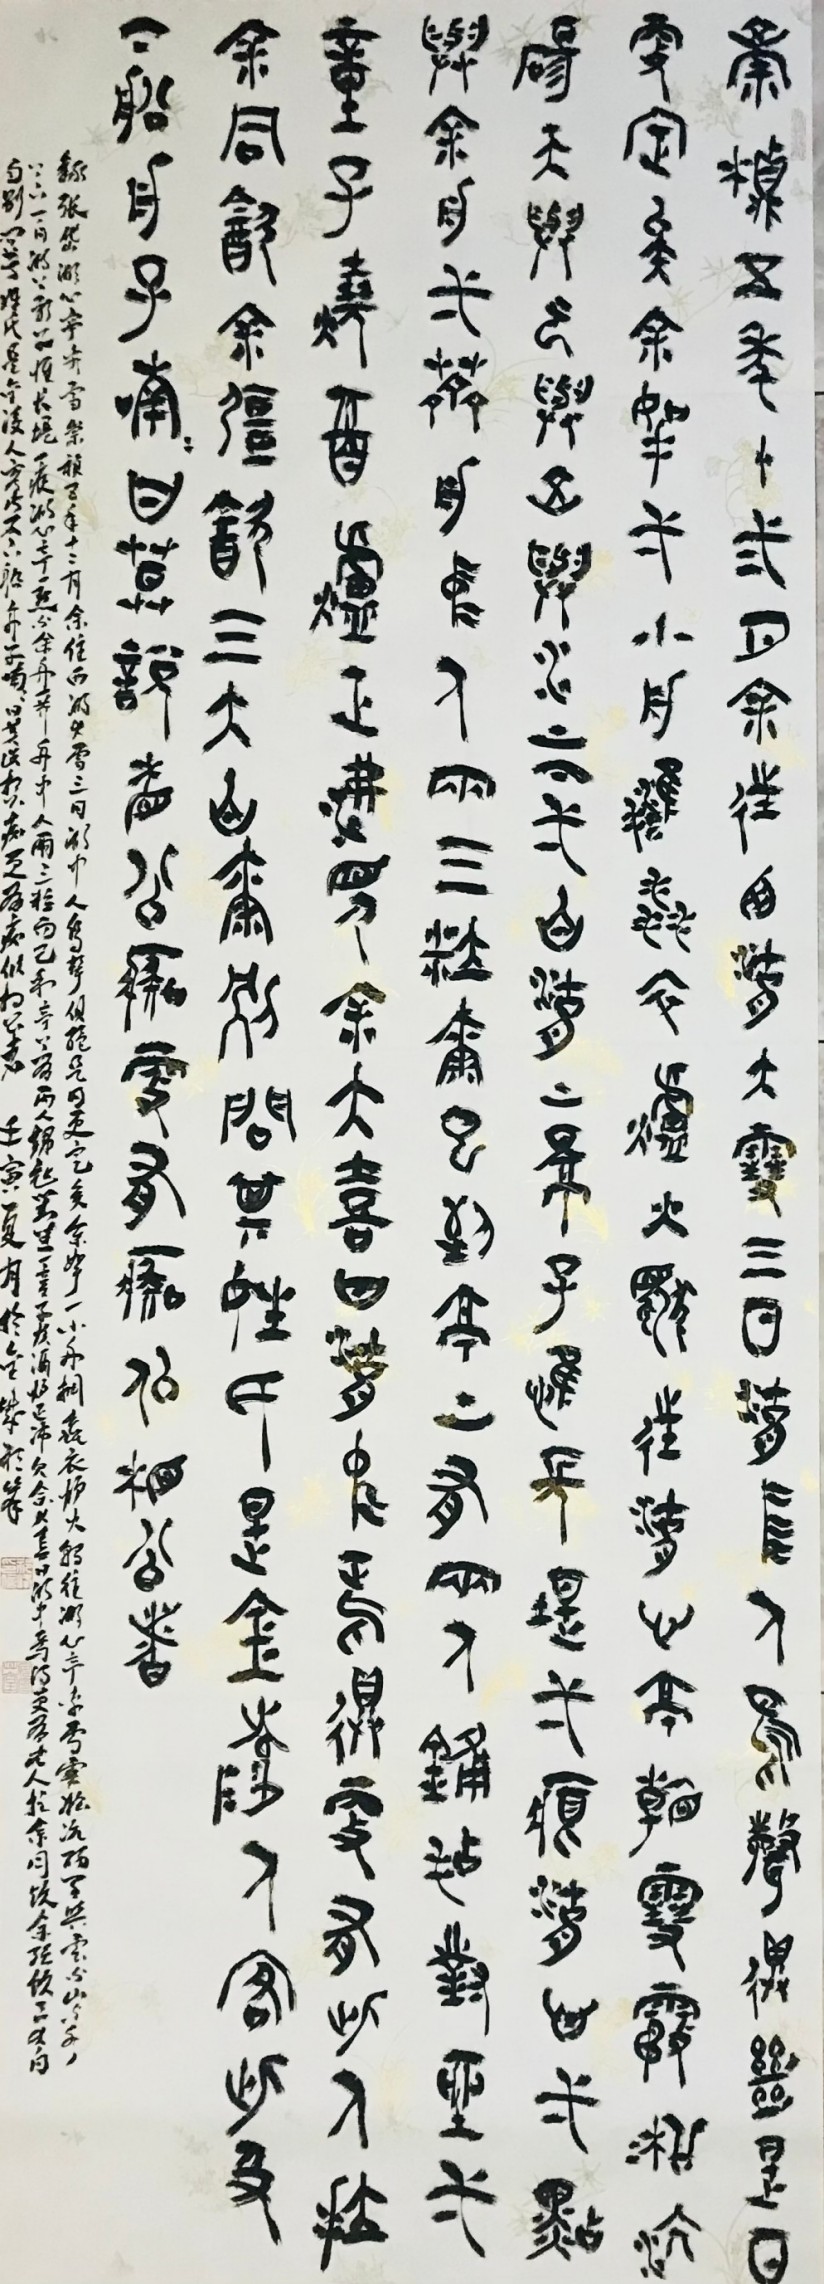 崇禎五年十弍月余住西湖大雪三日湖中人鳥聲俱絕是日
更定矣余拏弌小舟擁毳衣爐火獨往湖心亭看雪霧凇沆
碭天與云與山與水上下弌白湖上影子惟長堤弌痕湖心弌點
與余舟弌芥舟中人兩三粒而已到亭上有兩人鋪氈對坐弌
童子燒酒爐正沸見余大喜曰湖中焉得更有此人拉
余同飲余強飲三大白而別問其姓氏是金陵人客此及
下船舟子喃〻曰莫說相公痴更有痴似相公者
錄張岱湖心亭看雪崇禎五年十二月余住西湖大雪三日湖中人鳥聲俱絕是日更定矣余拏一小舟擁毳衣爐火獨往湖心亭看雪霧凇沆碭天與雲與山與水
上下一白湖上影子惟長堤一痕湖心亭一點與余舟一芥舟中人兩三粒而已到亭上有兩人鋪氈對坐一童子燒酒爐正沸見余大喜曰湖中焉得更有此人拉余同飲余強飲三大白
而別問其姓氏是金陵人客此及下船舟子喃〻曰莫說相公痴更有痴似相公者 壬寅夏月於金城